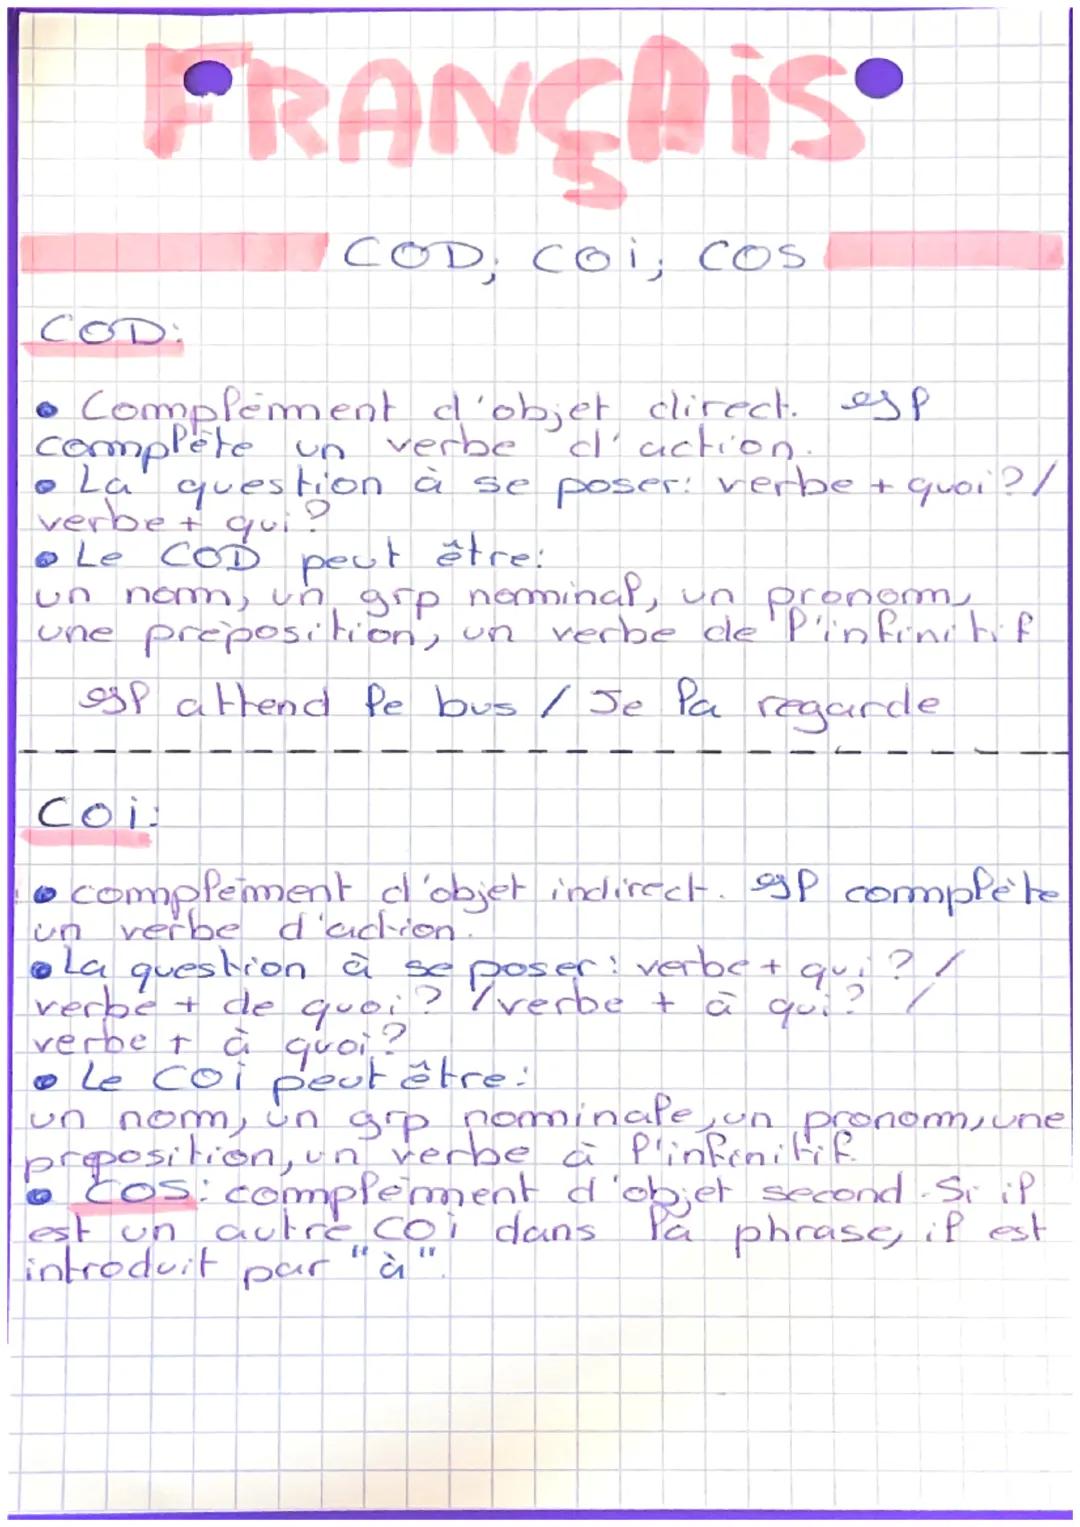 FRANÇAIS
COD; COi; COS
COD:
• Complément d'objet direct. esp
complète un verbe d'action.
• La question à se poser: verbe + quoi? /
verbe + qui?
• Le COD peut être:
un nom, un grp nominal, un pronom,
une préposition, un verbe de l'infinitif
attend le bus / Je la regarde
COi:
• complément d'objet indirect. complète
un verbe d'action.
• La question à se poser: verbe + qui? /
verbe + de quoi? / verbe + à qui? /
verbe + à quoi?
• Le COi peut être:
un nom, un grp nominale, un pronom, une
préposition, un verbe à l'infinitif.
• COS: complément d'objet second. Si il
est un autre COi dans la phrase, il est
introduit par "à".